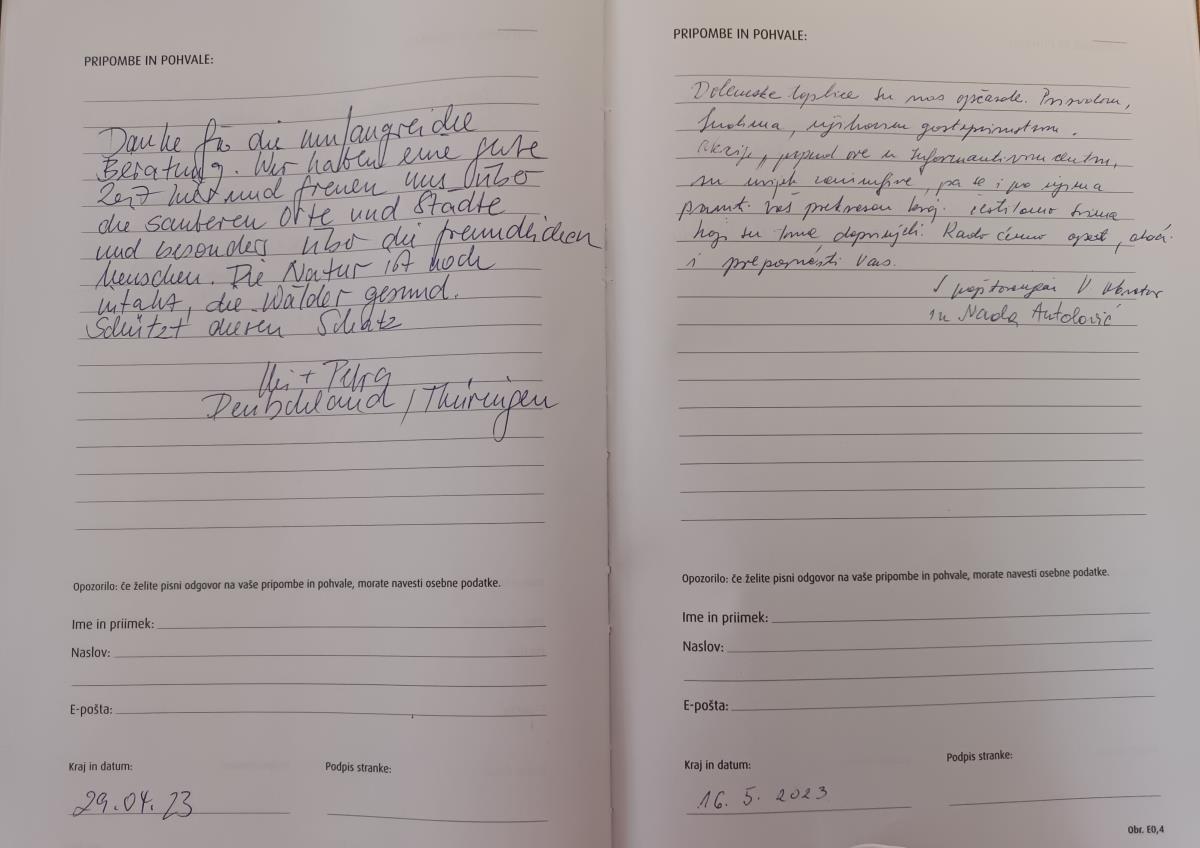 PRIPOMBE IN POHVALE:
Danke für die umfangreiche
Beratung. Wir haben eine gute
Zeit hier und freuen uns über
die sauberen Orte und Städte
und besonders über die freundlichen
Menschen. Die Natur ist noch
intakt, die Wälder gesund.
Schützt diesen Schatz
+ Petra
Deutschland / Thüringen
Opozorilo: če želite pisni odgovor na vaše pripombe in pohvale, morate navesti osebne podatke.
Ime in priimek:
Naslov:
E-pošta:
Kraj in datum:
Podpis stranke:
29.04.23
PRIPOMBE IN POHVALE:
Dolenjske toplice su nas opčarale. Prirodom,
ljudima, njihovim gostoprimstvom.
ove u Informativnom centru,
su uvijek, pa se i po njima
pamti Vaš prekrasan kraj. Čestitamo svima
koji su tome doprinjeli. Rado ćemo opet doći
i preporučiti Vas.
S poštovanjem
Nada Antolović
Opozorilo: če želite pisni odgovor na vaše pripombe in pohvale, morate navesti osebne podatke.
Ime in priimek:
Naslov:
E-pošta:
Kraj in datum:
Podpis stranke:
16. 5. 2023
Obr. E0,4